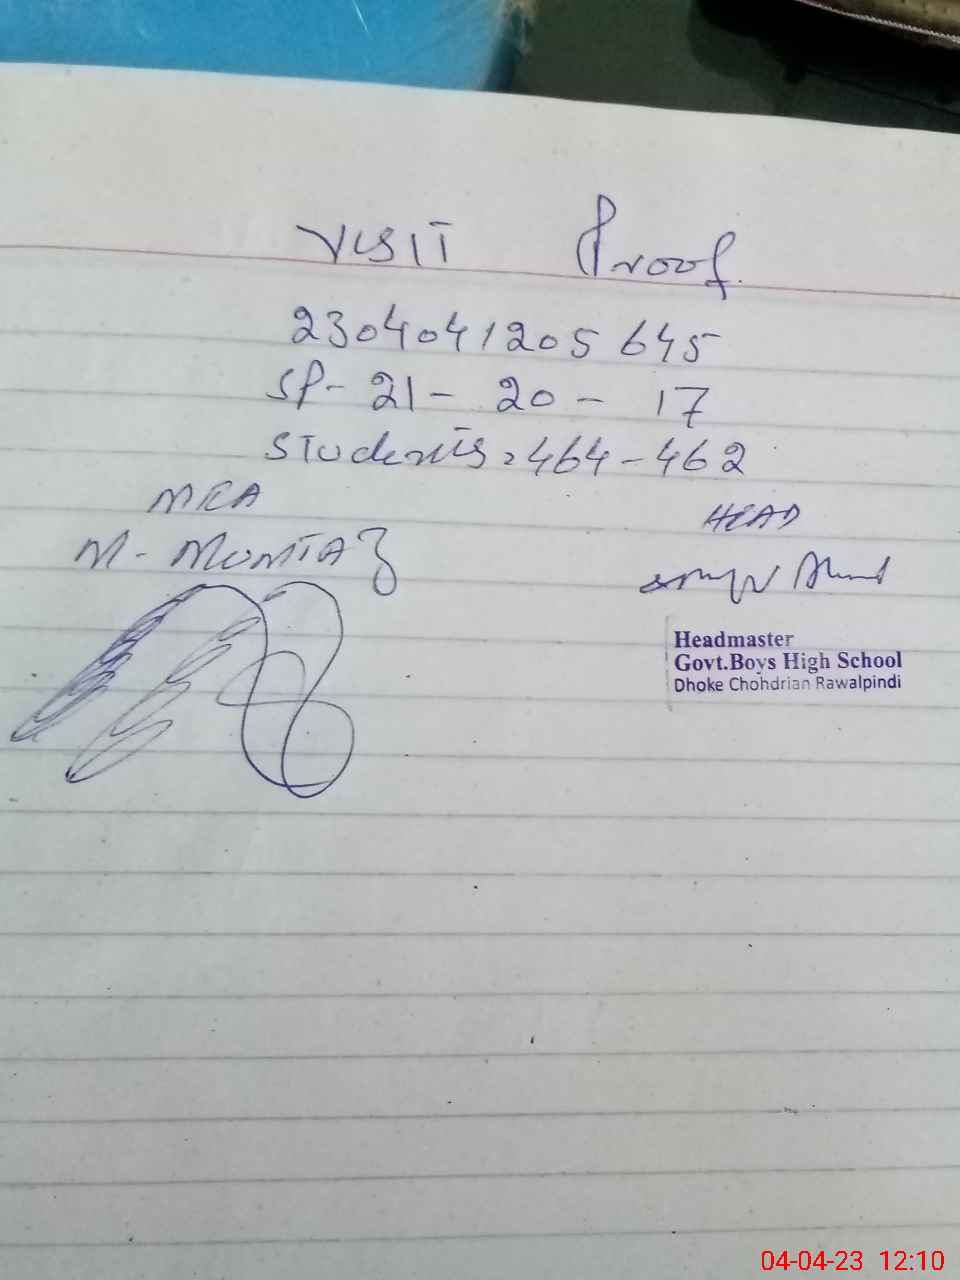 VISIT Proof
2304041205645
SP- 21 - 20 - 17
Students = 464 - 462
MEA
M. MUMTAZ
HEAD
Headmaster
Govt.Boys High School
Dhoke Chohdrian Rawalpindi
04-04-23 12:10